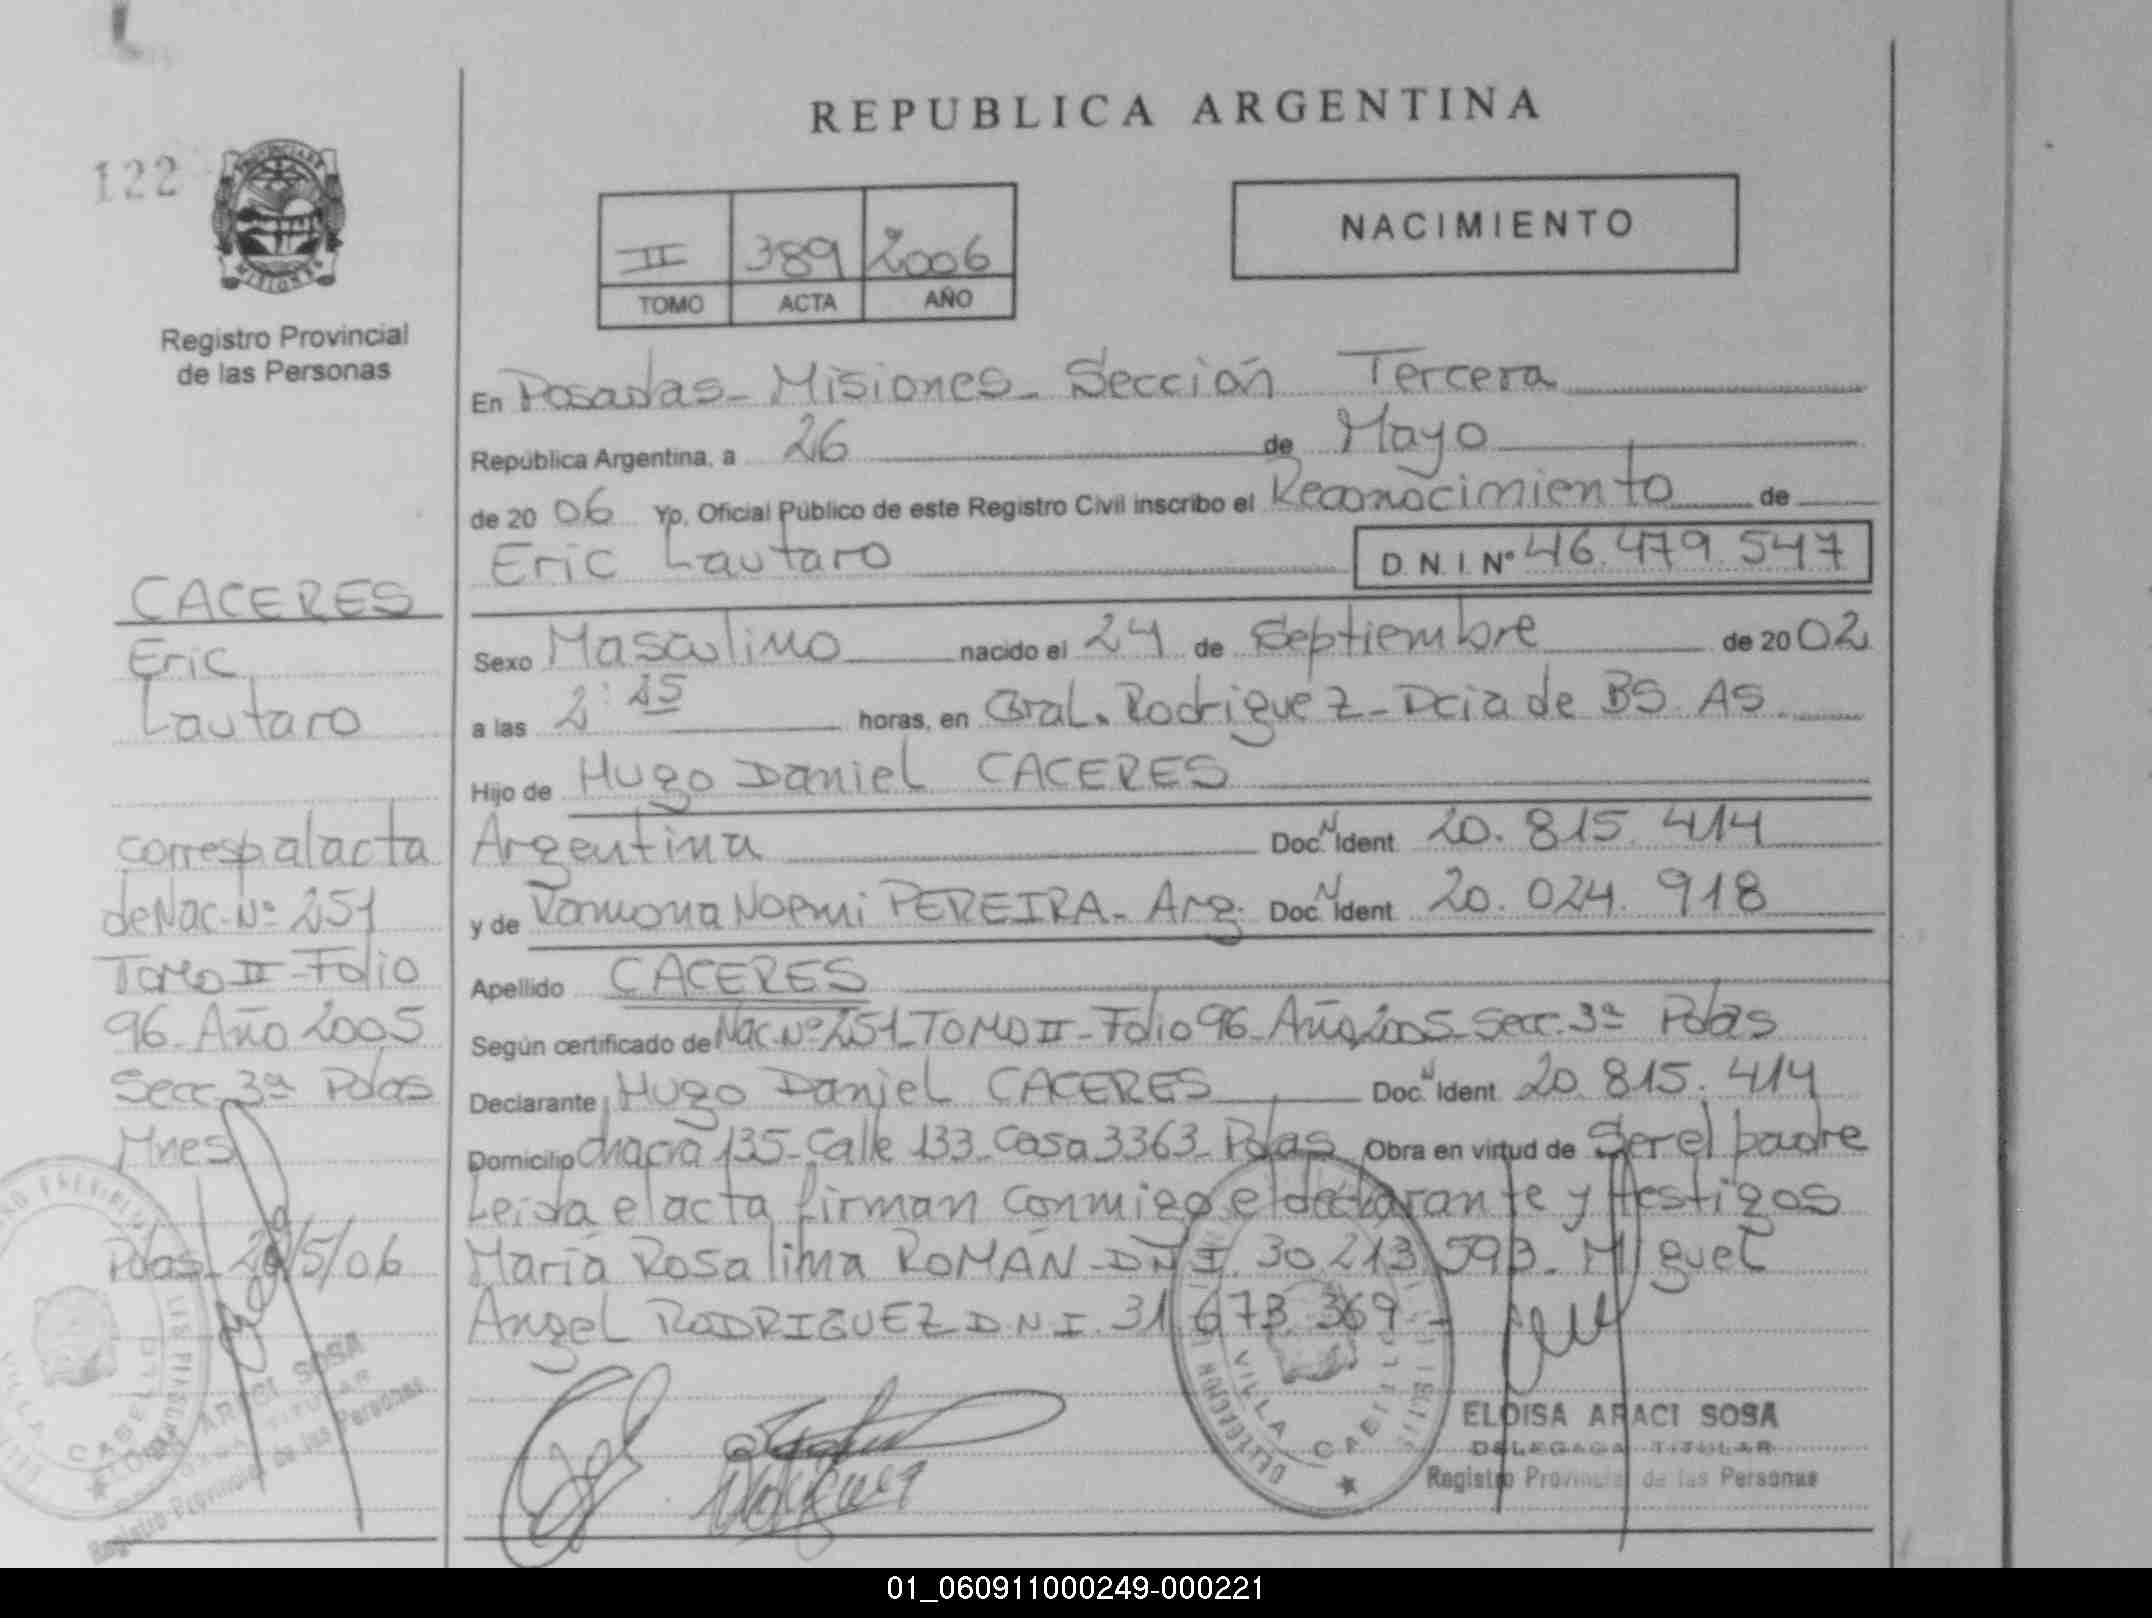 REPUBLICA ARGENTINA
122
NACIMIENTO
II 389 2006
TOMO ACTA AÑO
Registro Provincial
de las Personas
En Posadas - Misiones - Sección Tercera
República Argentina, a 26 de Mayo
de 2006 Yo, Oficial Público de este Registro Civil inscribo el Reconocimiento de
Eric Lautaro D.N.I. Nº 46.479.547
Sexo Masculino nacido el 24 de Septiembre de 2002
a las 2:25 horas, en Gral. Rodriguez - Pcia de BS. AS
Hijo de Hugo Daniel CACERES
Argentina Doc. N Ident. 20.815.414
y de Ramona Noemi PEREIRA - Arg. Doc. N Ident. 20.024.918
Apellido CACERES
Según certificado de Nac. Nº 251 - TOMO II - Folio 96 - Año 2005 - Secc. 3ª Pdas
Declarante Hugo Daniel CACERES Doc. N Ident. 20.815.414
Domicilio chacra 135 - Calle 133 - Casa 3363 - Pdas Obra en virtud de Ser el padre
Leída el acta firman conmigo el declarante y testigos
María Rosa lima ROMÁN - DNI. 30 213 593 - Miguel
Angel RODRIGUEZ D.N.I. 31.673.369 -
CACERES
Eric
Lautaro
corresp al acta
de Nac. Nº 251
Tomo II - Folio
96 - Año 2005
Secc. 3ª Pdas
Mnes
Pdas - 26/5/06
ELOISA ARACI SOSA
DELEGADA TITULAR
Registro Provincial de las Personas
DELEGACION
VILLA CABELLO
ELOISA ARACI SOSA
TITULAR
Registro Provincial de las Personas
VILLA CABELLO
01_060911000249-000221